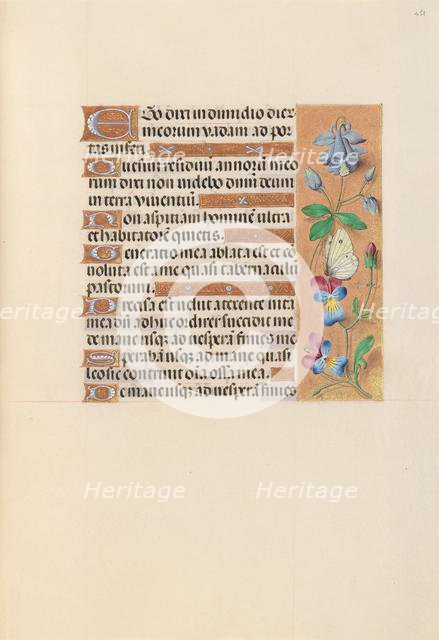 451
Ego dixi in dimidio dier
meorum vadam ad por
tas inferi
Quesivi residuum annorū meo
rum dixi non videbo dnm̄ deum
in terra viventiū.
Non aspitiam hominē ultra
et habitatorē quietis.
Generatio mea ablata est et co
noluta est a me quasi tabernaculū
pastorum.
Precisa est velut a texente vita
mea dū adhuc ordirer succidit me
de mane usq; ad vesperā finies me
Sperabā usq; ad mane quasi
leo sic contrivit oīa ossa mea.
De mane usq; ad vesperā finies
Heritage Heritage
Heritage Heritage
Heritage Heritage